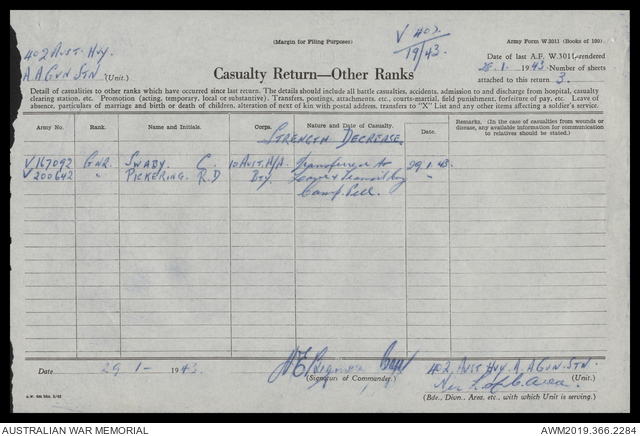 V 402
19/43.
(Margin for Filing Purposes)
Army Form W.3011 (Books of 100)
402 Aust. Hvy.
A A Gun Stn (Unit.)
Date of last A.F. W.3011 rendered
28.1. 1943. Number of sheets
attached to this return 3.
Casualty Return—Other Ranks
Detail of casualties to other ranks which have occurred since last return. The details should include all battle casualties, accidents, admission to and discharge from hospital, casualty
clearing station, etc. Promotion (acting, temporary, local or substantive). Transfers, postings, attachments, etc., courts-martial, field punishment, forfeiture of pay, etc. Leave of
absence, particulars of marriage and birth or death of children, alteration of next of kin with postal address, transfers to "X" List and any other items affecting a soldier's service.
Army No. Rank. Name and Initials. Corps. Nature and Date of Casualty. Date. Remarks. (In the case of casualties from wounds or
disease, any available information for communication
to relatives should be stated.)
Strength Decrease.
V167092 Gnr. Swaby. C. 10 Aust. H/A Transferred to 29.1.43.
V200642 " Pickering. R.D Bty. Leave & Transit
Camp.
Date 29 1- 1943.
(Signature of Commander.)
402 Aust Hvy. A.A Gun. Stn.
(Unit.)
(Bde., Divn., Area, etc., with which Unit is serving.)
AUSTRALIAN WAR MEMORIAL
AWM2019.366.2284